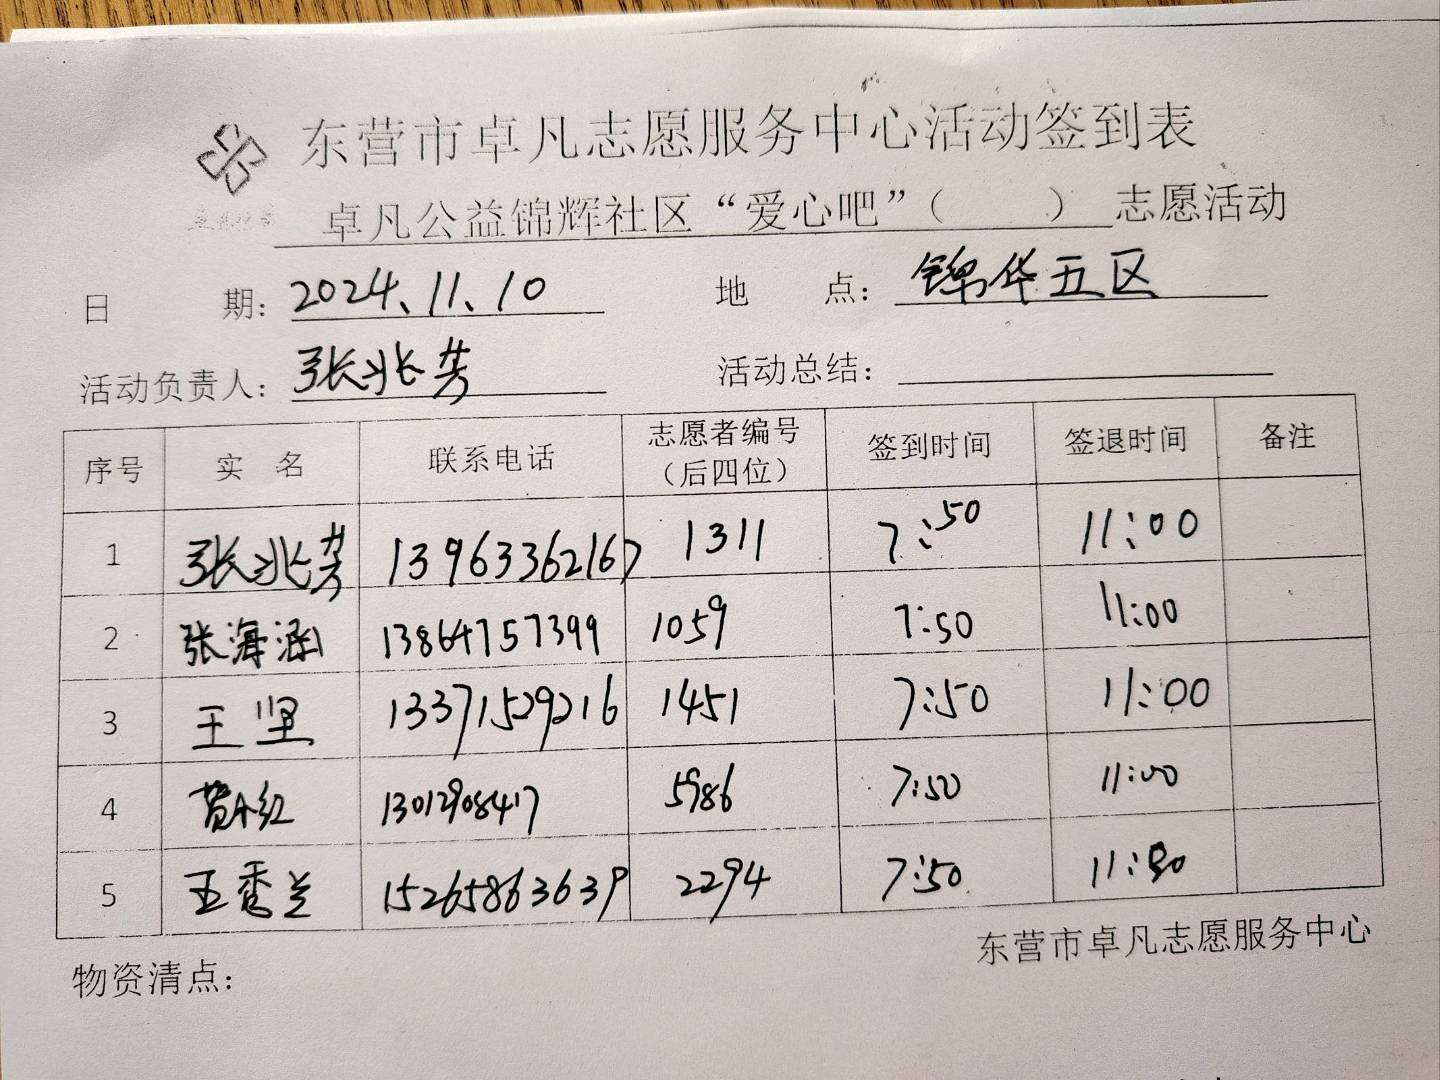 东营市卓凡志愿服务中心活动签到表
卓凡公益锦辉社区“爱心吧”（ ）志愿活动
日 期：2024、11、10 地 点：锦华五区
活动负责人：张兆芳 活动总结：
序号 实 名 联系电话 志愿者编号（后四位） 签到时间 签退时间 备注
1 张兆芳 13963362167 1311 7:50 11:00
2 张海涵 13864757399 1059 7:50 11:00
3 王坚 13371529216 1451 7:50 11:00
4 红 13012908417 5986 7:50 11:00
5 王香兰 15265863639 2294 7:50
东营市卓凡志愿服务中心
物资清点：